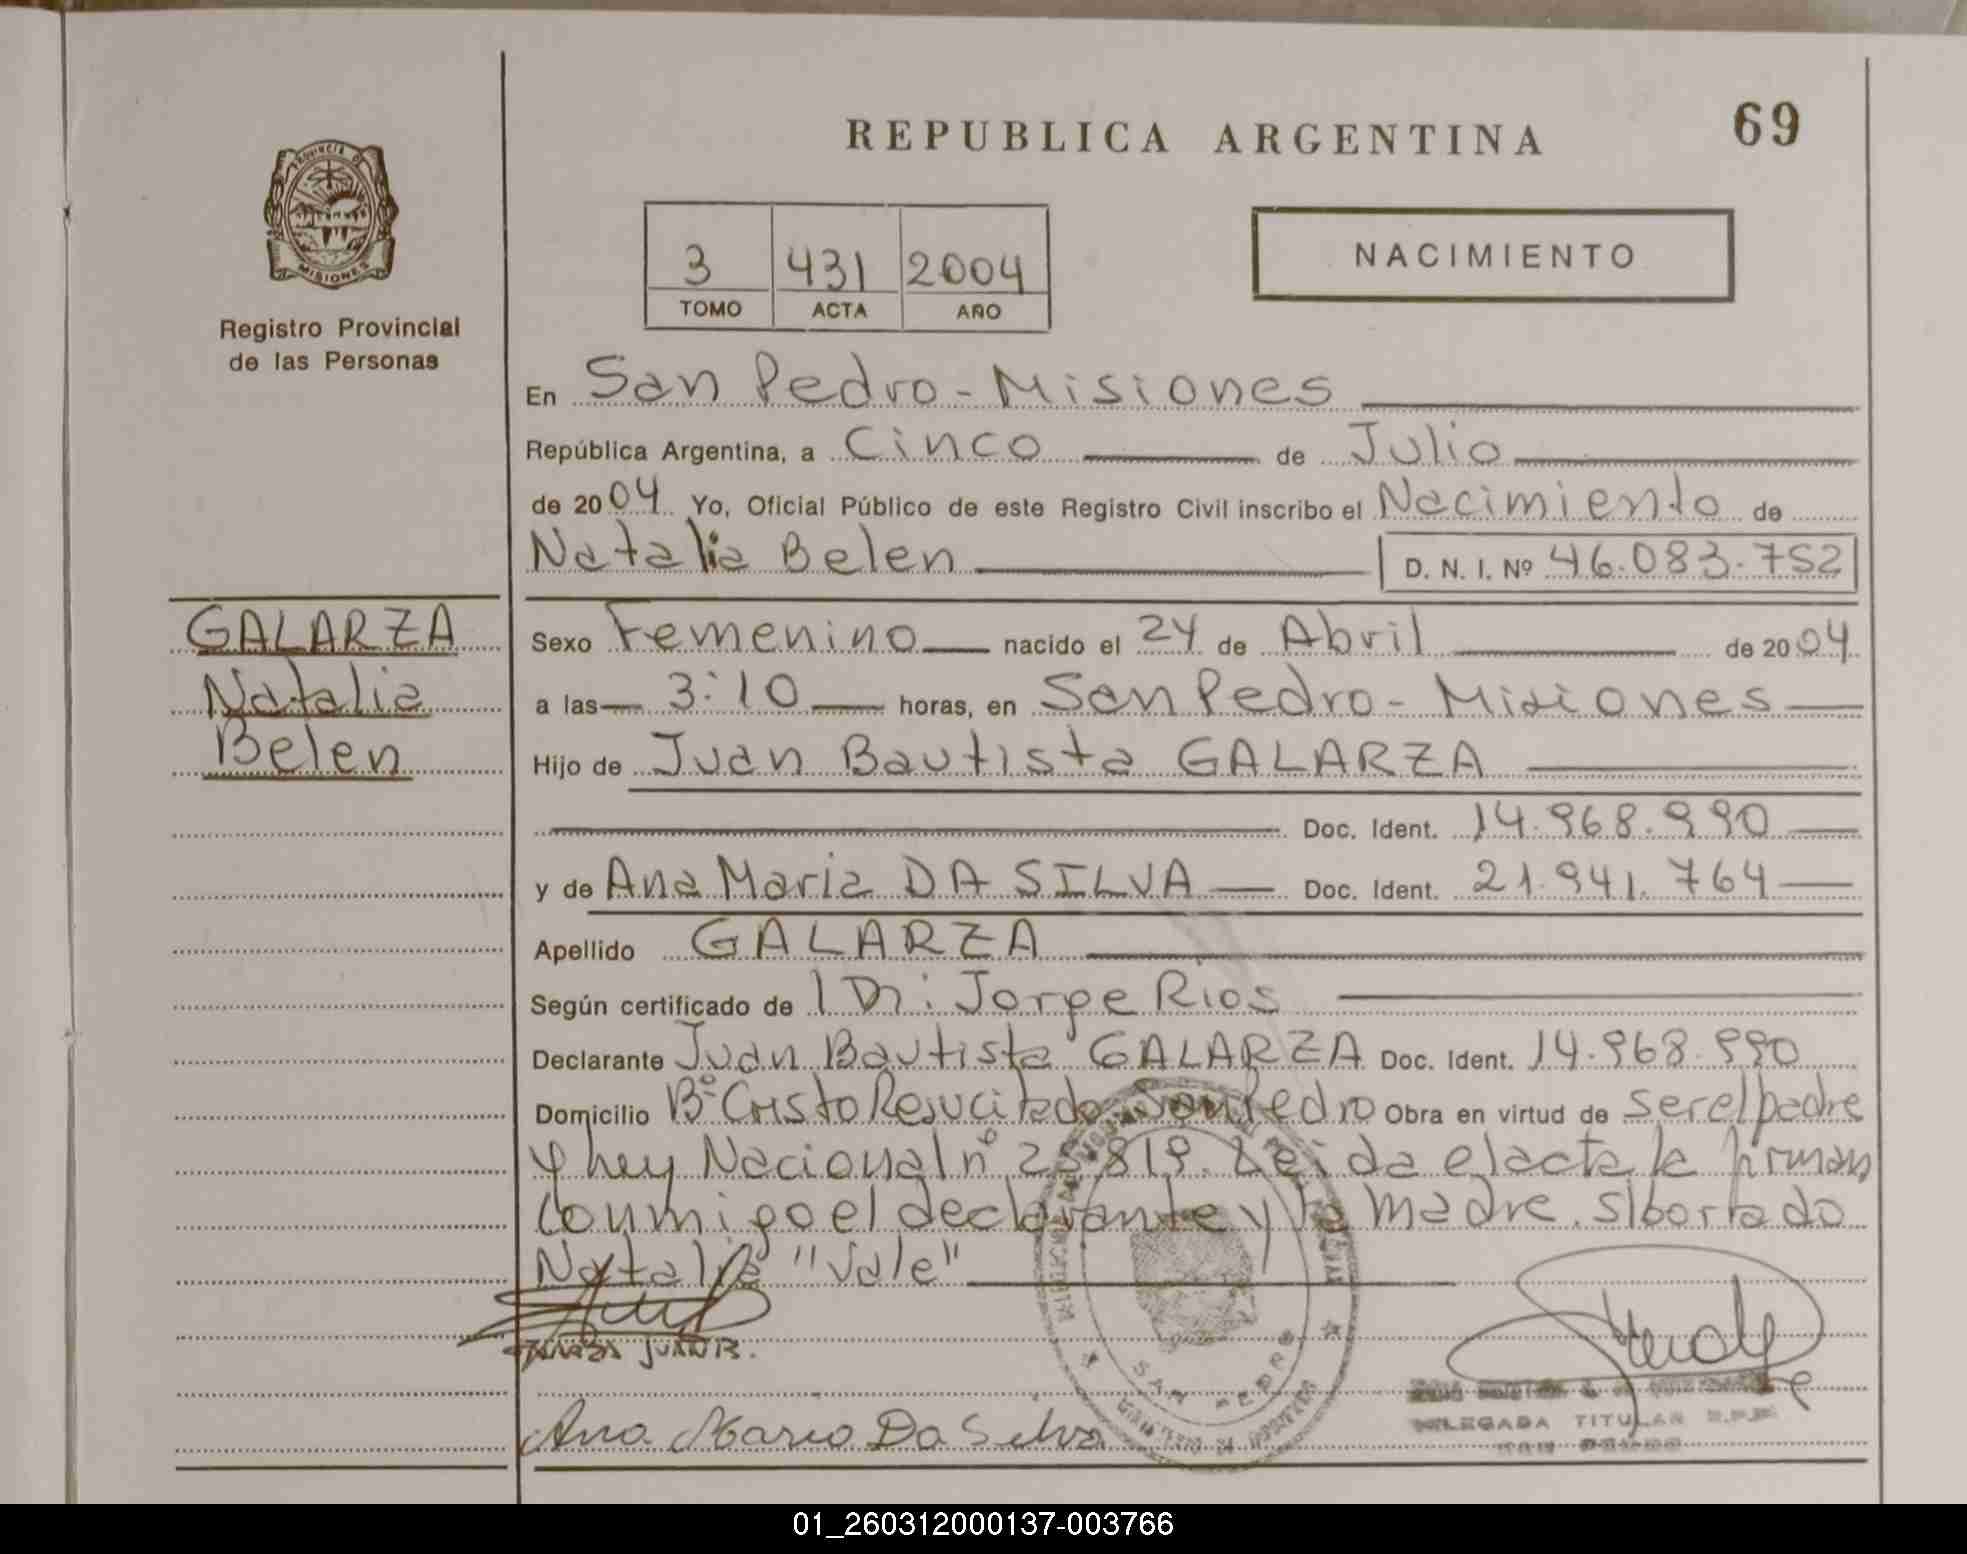 REPUBLICA ARGENTINA
69
PROVINCIA DE
MISIONES
Registro Provincial
de las Personas
3 431 2004
TOMO ACTA AÑO
NACIMIENTO
En San Pedro - Misiones
República Argentina, a Cinco de Julio
de 2004 Yo, Oficial Público de este Registro Civil inscribo el Nacimiento de
Natalia Belen D. N. I. Nº 46.083.752
GALARZA
Natalia
Belen
Sexo Femenino nacido el 24 de Abril de 2004
a las 3:10 horas, en San Pedro - Misiones
Hijo de Juan Bautista GALARZA
Doc. Ident. 14.968.990
y de Ana Maria DA SILVA Doc. Ident. 21.941.764
Apellido GALARZA
Según certificado de Dr: Jorge Rios
Declarante Juan Bautista GALARZA Doc. Ident. 14.968.990
Domicilio Bº Cristo Resucitado San Pedro Obra en virtud de ser el padre
y ley Nacional nº 25.819. Leida el acta la firman
conmigo el declarante y la madre. s/bortado
Natalia "Vale"
JUAN B.
Ana Maria Da Silva
SAN PEDRO
DELEGADA TITULAR R.P.P.
SAN PEDRO
01_260312000137-003766